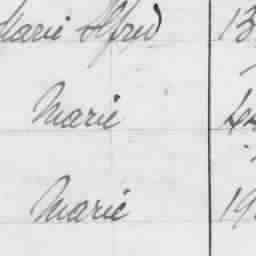 Marie Alfred 13
Marie
Marie 19